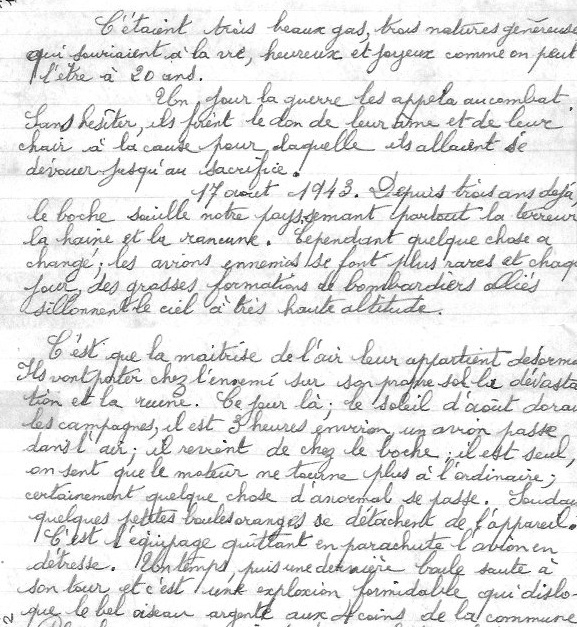 C'étaient trois beaux gas, trois natures généreuse
qui souriaient à la vie, heureux et joyeux comme on peut
l'être à 20 ans.
Un jour la guerre les appela au combat.
Sans hésiter, ils firent le don de leur âme et de leur
chair à la cause pour laquelle ils allaient se
dévouer jusqu'au sacrifice.
17 août 1943. Depuis trois ans déjà,
le boche souille notre pays, semant partout la terreur
la haine et la rancune. Cependant quelque chose a
changé; les avions ennemis se font plus rares et chaqu
jour, des grosses formations de bombardiers alliés
sillonnent le ciel à très haute altitude.
C'est que la maitrise de l'air leur appartient désorma
Ils vont porter chez l'ennemi sur son propre sol la dévasta
tion et la ruine. Ce jour là; le soleil d'août dorai
les campagnes, il est 3 heures environ, un avion passe
dans l'air; il revient de chez le boche; il est seul,
on sent que le moteur ne tourne plus à l'ordinaire;
certainement quelque chose d'anormal se passe. Soudain
quelques petites boules oranges se détachent de l'appareil.
C'est l'équipage quittant en parachute l'avion en
détresse. Un temps, puis une dernière boule saute à
son tour, et c'est une explosion formidable qui dislo-
que le bel oiseau argenté aux 4 coins de la commune